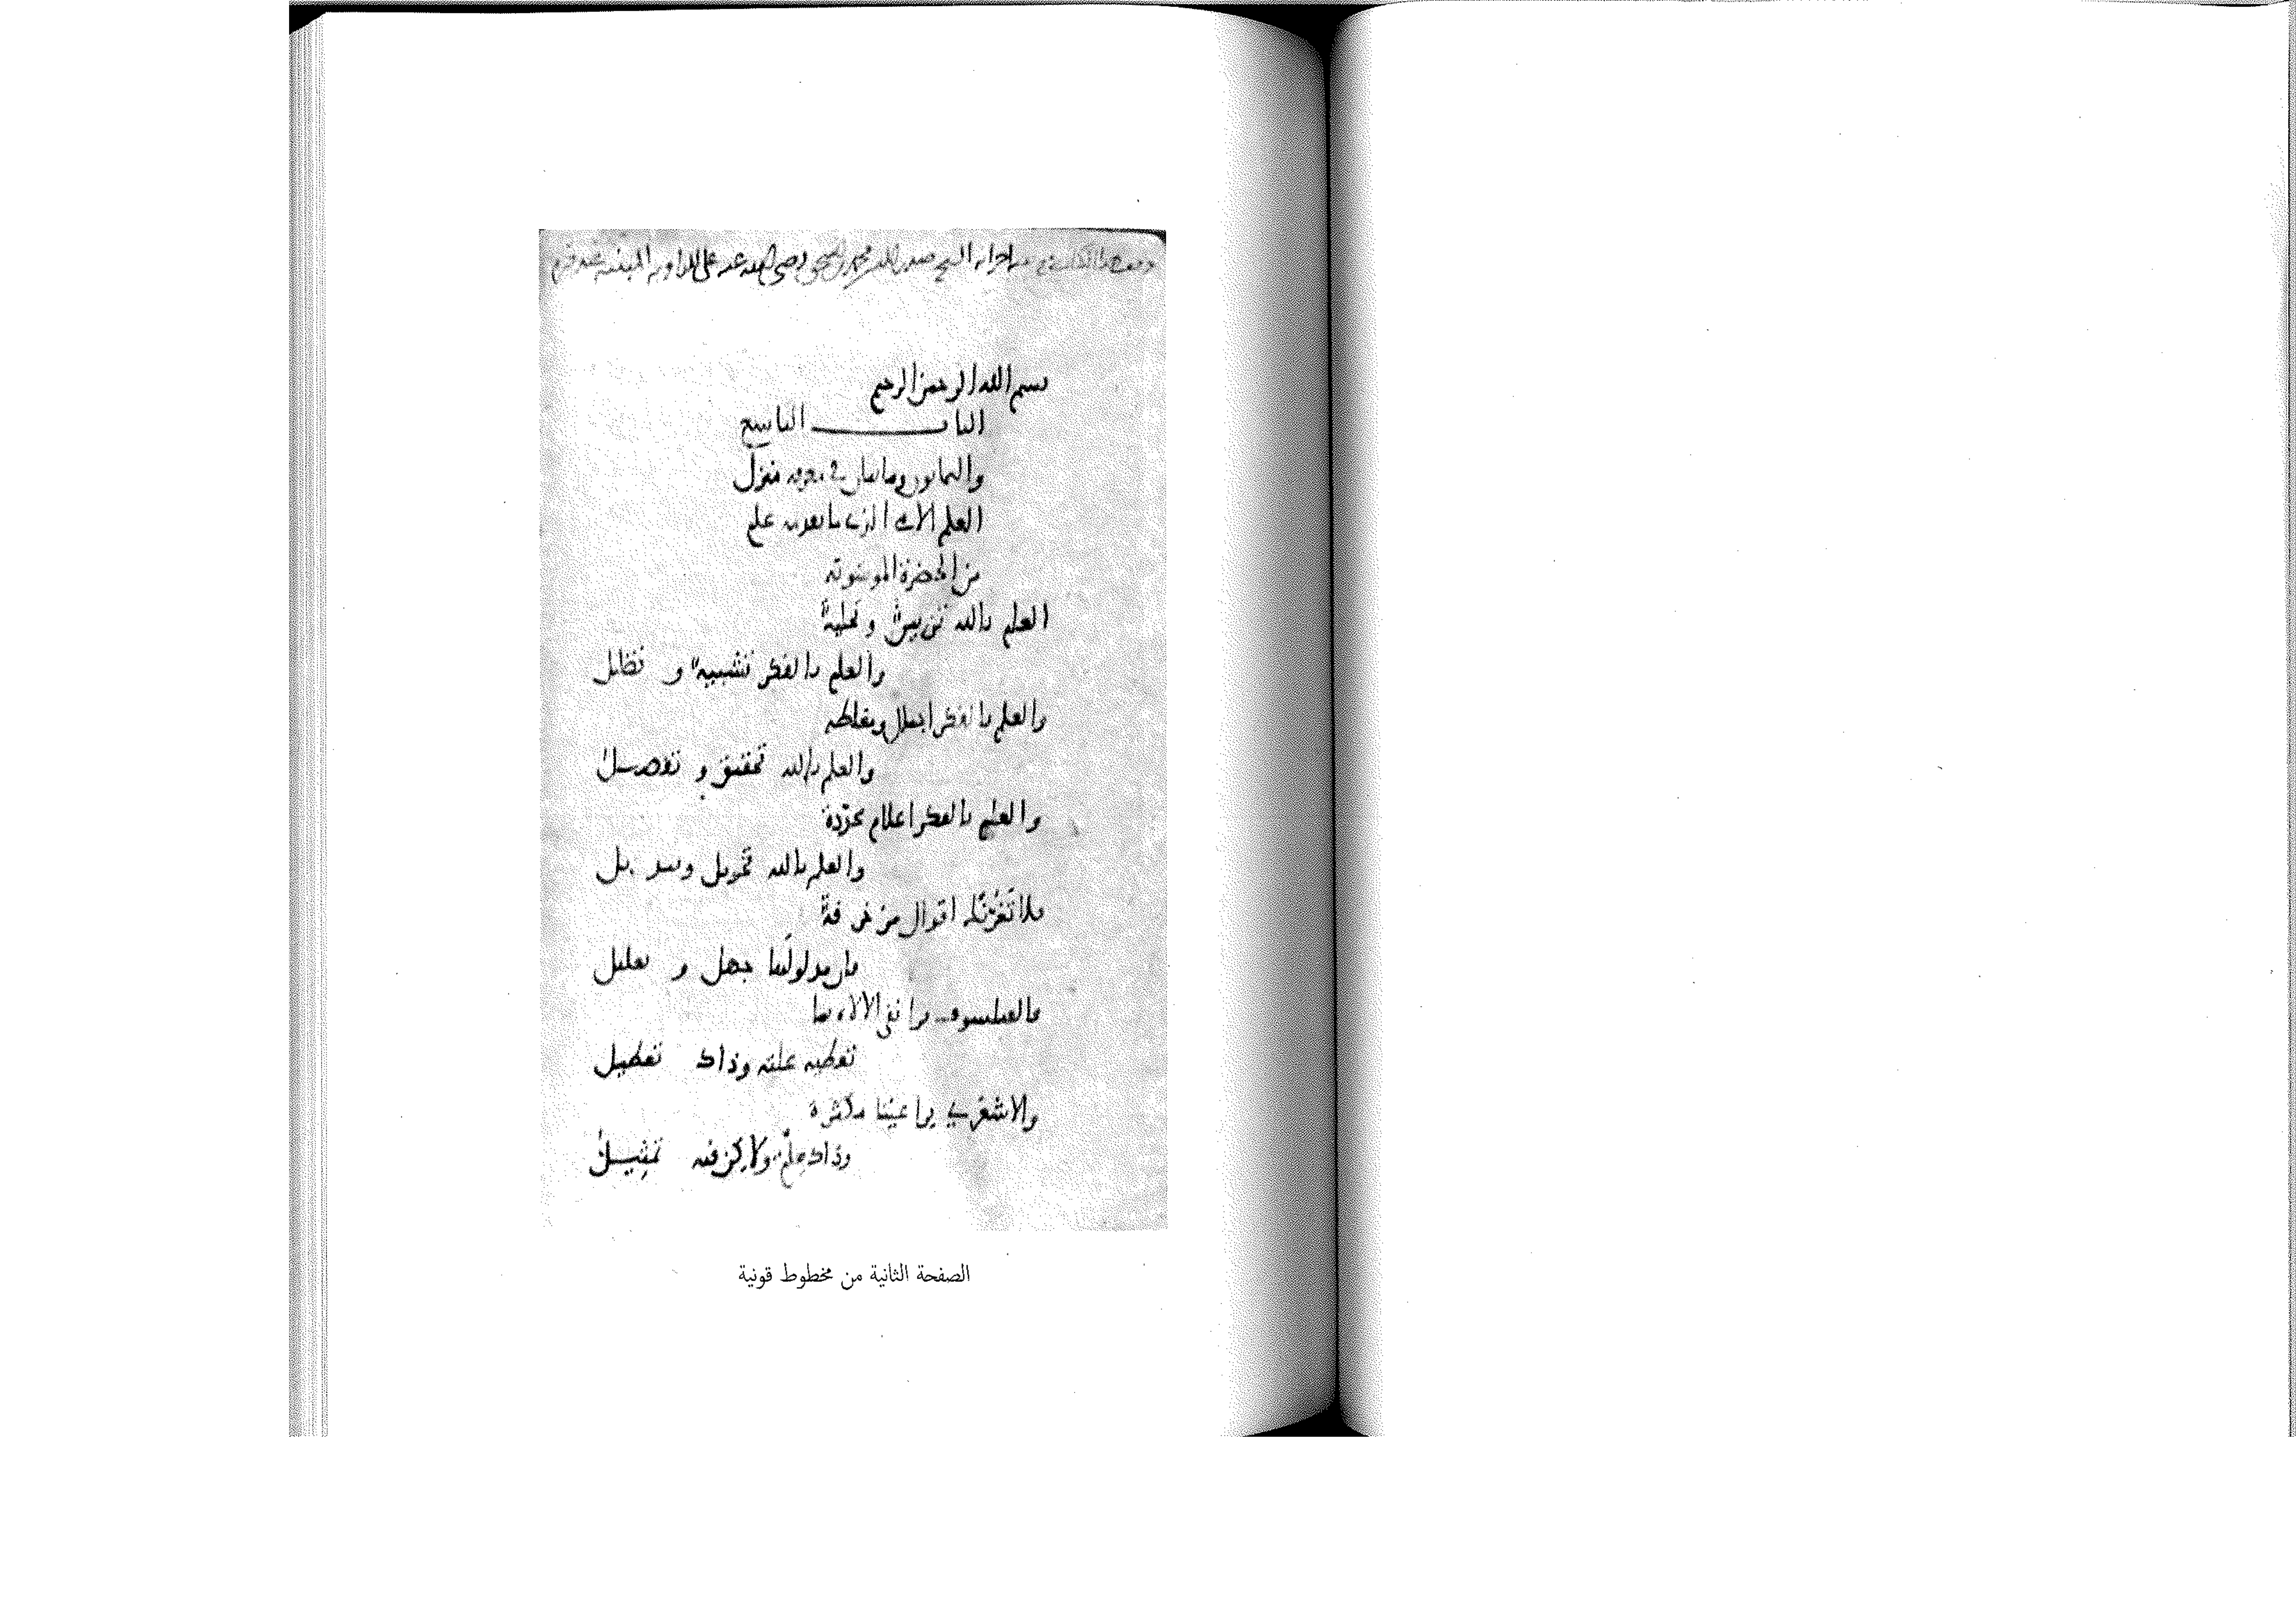 من الشيخ صدر الدين محمد بن رضي الله عنه على الزاوية عند
بسم الله الرحمن الرحيم
الباب التاسع
والثمانون ومائتان في معرفة منزل
العلم الامي الذي ما تقدمه علم
من الحضرة الموسوية
العلم بالله تزيينٌ و تحليةٌ
والعلم بالفكر تشبيهٌ و تضليل
والعلم بالفكر اجمال ومغلطة
والعلم بالله تحقيق و تفصيلُ
والعلم بالفكر اعلام مجرّدة
والعلم بالله تحويل و تبديل
فلا تغرّنّك اقوال مزخرفةٌ
فان مدلولها جهل و تعليل
فالفيلسوف يرا نفي الاله بما
تعطيه علته وذاك تعطيل
والاشعري يرا عينا مكثرة
وذاك علمٌ ولاكن فيه تمثيلُ
الصفحة الثانية من مخطوط قونية